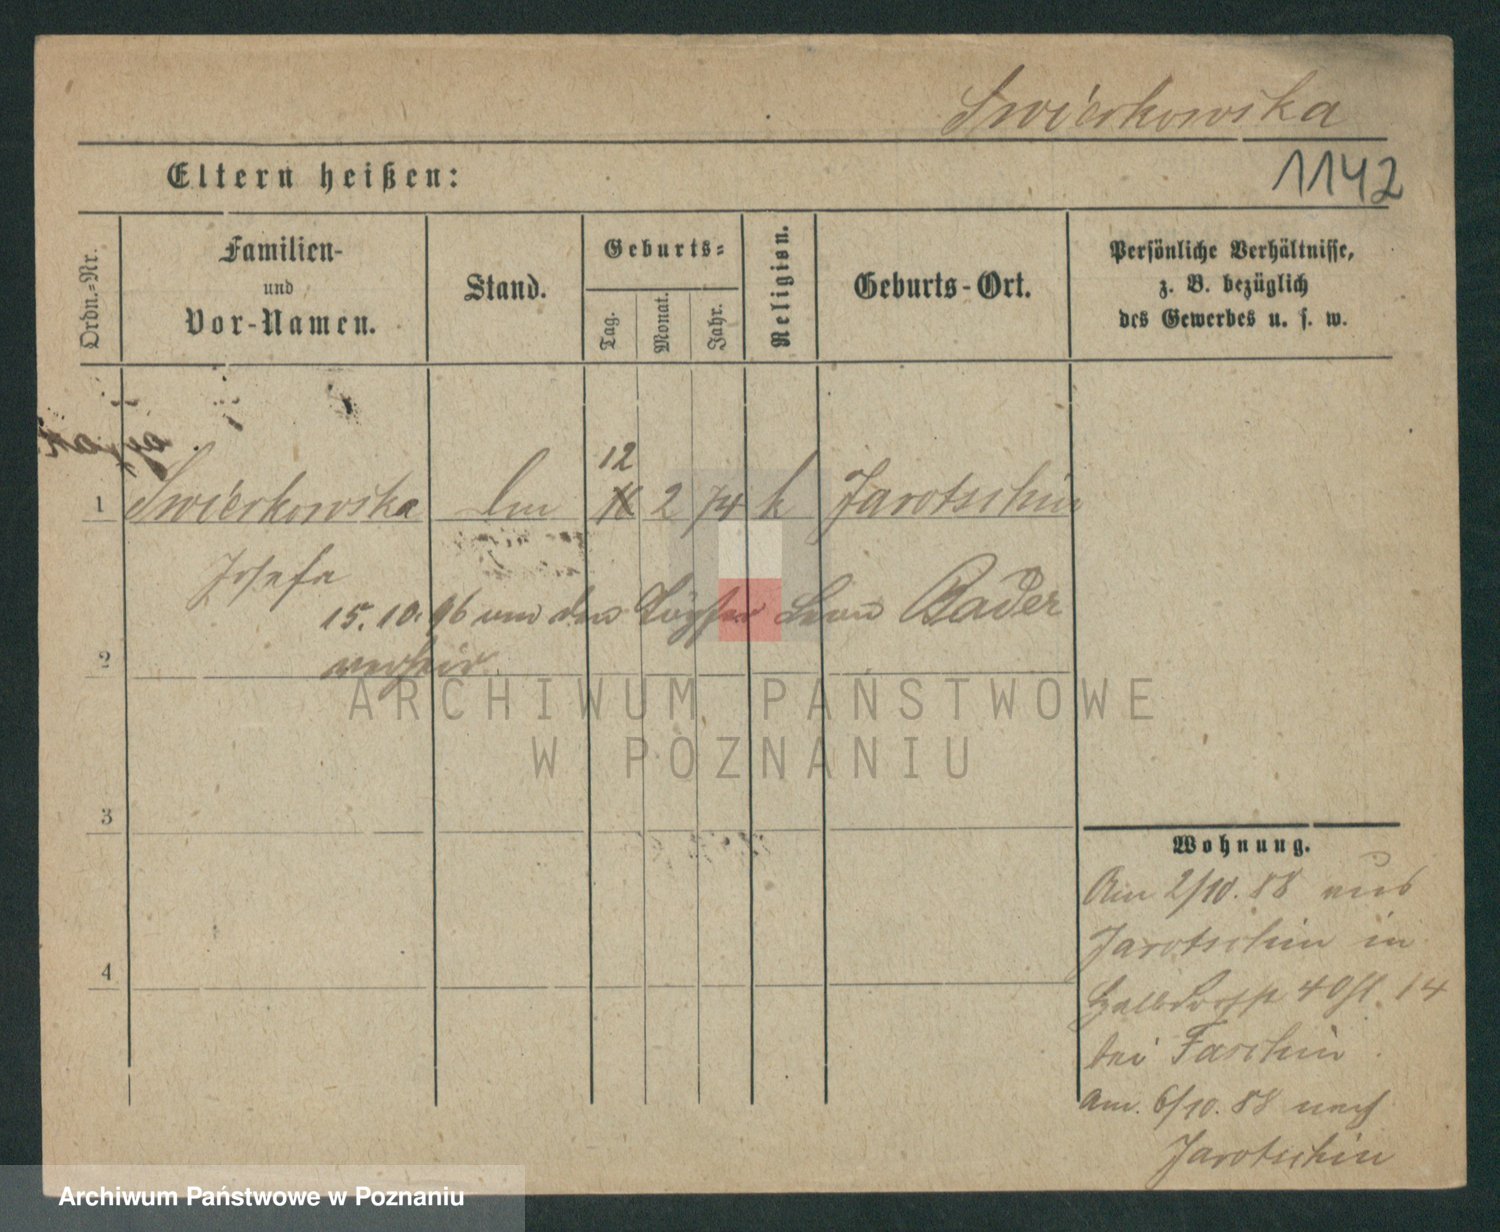 Swierkowska
1142
Eltern heißen:
Ordn.-Nr.
Familien-
und
Vor-Namen.
Stand.
Geburts-
Tag.
Monat.
Jahr.
Religion.
Geburts-Ort.
Persönliche Verhältnisse,
z. B. bezüglich
des Gewerbes u. s. w.
12
1 Swierkowska 2 74 k Jarotschin
Josefa
15. 10. 96 an den Töpfer Leon Bader
2 verheir.
3
4
Wohnung.
Am 2/10. 88 aus
Jarotschin in
Halbdorfstr 14
bei Faschin
am. 6/10. 88 nach
Jarotschin
ARCHIWUM PAŃSTWOWE
W POZNANIU
Archiwum Państwowe w Poznaniu